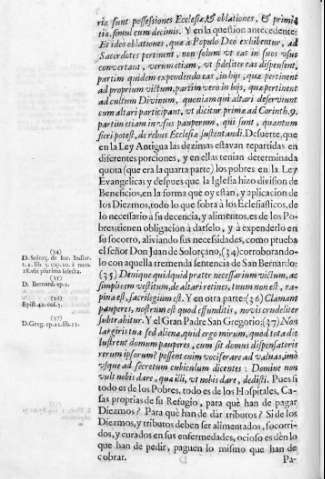 riæ sunt possessiones Ecclesiæ, & oblationes, & primi-
tiæ, simul cum decimis. Y en la question antecedente:
Et ideo oblationes, quæ à Populo Deo exhibentur, ad
Sacerdotes pertinent, non solum ut eas in suos usus
convertant, verum etiam, ut fideliter eas dispensent,
partim quidem expendendo eas, in hijs, quæ pertinent
ad proprium victum, partim vero in hijs, quæ pertinent
ad cultum Divinum, quoniam qui altari deserviunt
cum altari participant, ut dicitur primæ ad Corinth. 9.
partim etiam in usus pauperum, qui sunt, quantum
fieri potest, de rebus Ecclesiæ sustentandi. De suerte, que
en la Ley Antigua las dezimas estavan repartidas en
diferentes porciones, y en ellas tenian determinada
quota (que era la quarta parte) los pobres en la Ley
Evangelica; y despues que la Iglesia hizo division de
Beneficios, en la forma que oy estàn, y aplicacion de
los Diezmos, todo lo que sobra à los Eclesiasticos, de
lo necessario à su decencia, y alimentos, es de los Po-
bres: tienen obligacion à darselo, y à expenderlo en
su socorro, aliviando sus necessidades, como prueba
el señor Don Juan de Solorçano, (34) corroborando-
lo con aquella tremenda sentencia de San Bernardo:
(35) Denique quidquid præter necessarium victum, ac
simplicem vestitum, de altari retines, tuum non est, ra-
pina est, sacrilegium est. Y en otra parte: (36) Clamant
pauperes, nostrum est quod effunditis, nobis crudeliter
subtrahitur. Y el Gran Padre San Gregorio: (37) Non
largiris tua sed aliena, quid ergo mirum, quod tota die
lustrent domum pauperes, cum sit domus dispensatoris
rerum ipsorum? possent enim vociferare ad valuas, imò
usque ad secretum cubiculum dicentes: Domine non
vult nobis dare, quæ illi, ut nobis dare, dedisti. Pues si
todo es de los Pobres, todo es de los Hospitales, Ca-
sas proprias de su Refugio, para què han de pagar
Diezmos? Para què han de dar tributos? Si de los
Diezmos, y tributos deben ser alimentados, socorri-
dos, y curados en sus enfermedades, ocioso es dèn lo
que han de pedir, paguen lo mismo que han de
cobrar.
Pa-
(34)
D. Solorç. de Iur. Indiar.
(35)
D. Bernard. ep. 2.
(36)
Epist. 42.
(37)
D. Greg.